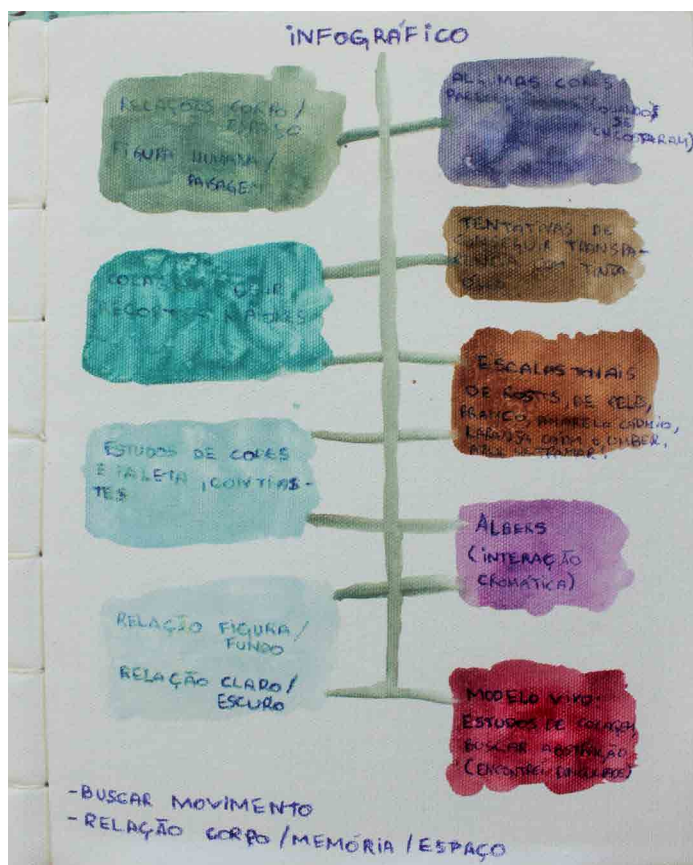 INFOGRÁFICO
RELAÇÕES CORPO /
ESPAÇO
FIGURA HUMANA /
PAISAGEM
COLAGEM
RECORTES
ESTUDOS DE CORES
E PALETA, CONTRAS-
TES
RELAÇÃO FIGURA /
FUNDO
RELAÇÃO CLARO /
ESCURO
ALGUMAS CORES
(QUANDO
SE
ENCOSTARAM)
TENTATIVAS DE
CONSEGUIR TRANSPA-
RÊNCIA COM TINTA
ÓLEO
ESCALAS TONAIS
DE ROSTOS, DE PELE,
BRANCO, AMARELO CÁDMIO,
LARANJA UMBER,
AZUL ULTRAMAR
ALBERS
(INTERAÇÃO
CROMÁTICA)
MODELO VIVO
ESTUDOS DE COLAGEM,
BUSCAR ABSTRAÇÃO
(ENCONTREI
-BUSCAR MOVIMENTO
-RELAÇÃO CORPO/MEMÓRIA/ESPAÇO